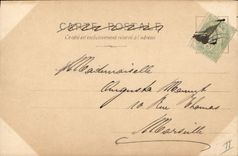 CARTE POSTALE
Ce côté est exclusivement réservé à l'adresse
Mademoiselle
Augusta
10 Rue Thomas
Marseille